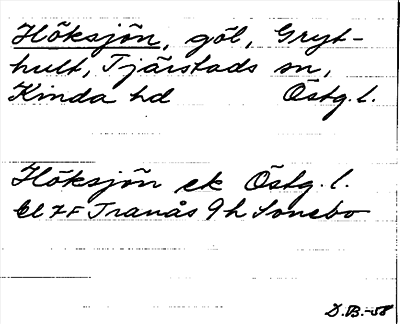 Höksjön, göl, Gryt-
hult, Tjärstads sn,
Kinda hd Östg. l.
Höksjön ek Östg. l.
bl 7F Tranås 9h Sonebo
D.B.-58